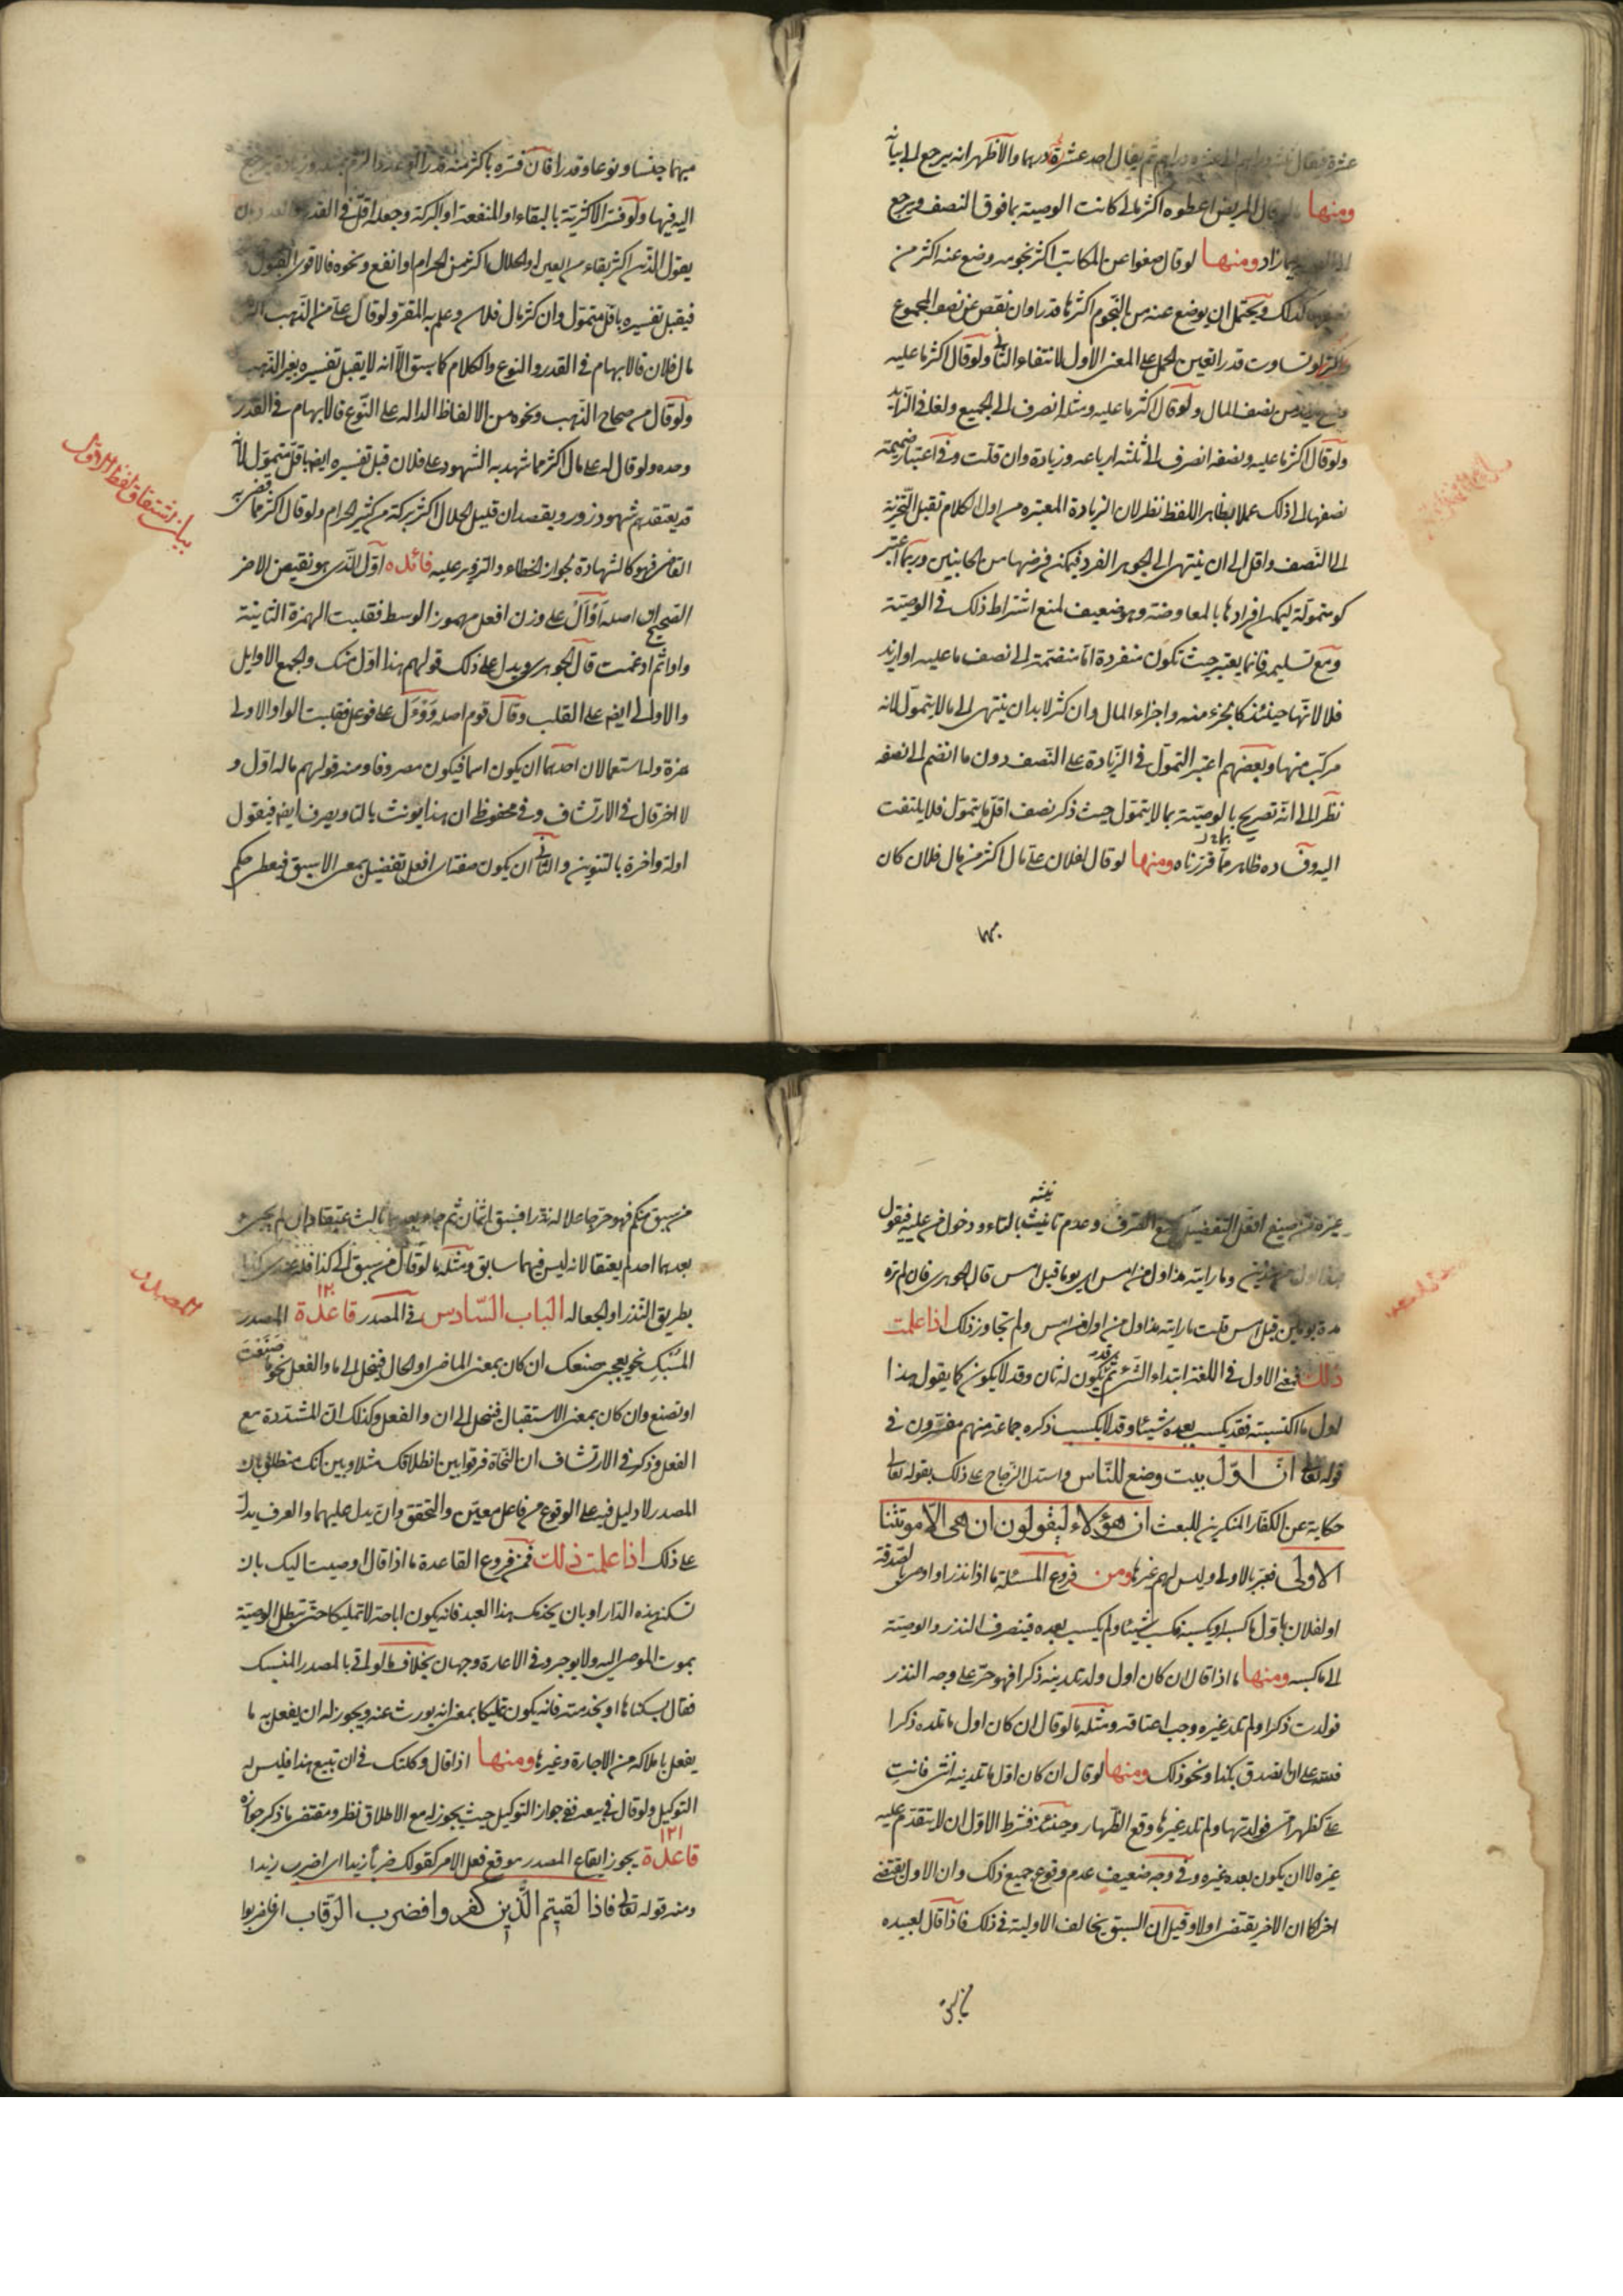 عشرة فقال احد عشرة درهما والاظهر انه يرجع الى بيانه
ومنها ما لو قال المريض اعطوه اكثر مالى كانت الوصية بما فوق النصف ويرجع
زاد ومنها لو قال ضعوا عن المكاتب اكثر نجومه وضع عنه اكثر من
نصفها كذلك ويحتمل ان يوضع عنه من النجوم اكثرها قدرا وان نقص عن نصف المجموع
ولو تساوت قدرا تعين الحمل على المعنى الاول لانتفاء الثانى ولو قال اكثر ما عليه
نصف المال ولو قال اكثر ما عليه ومثله انصرف الى الجميع ولغا فى الزايد
ولو قال اكثر ما عليه ونصفه انصرف الى ثلثة ارباعه وزيادة وان قلت وفى اعتبار ضميمة
نصفها الى ذلك عملا بظاهر اللفظ نظر لان الزيادة المعتبره من اول الكلام تقبل التجزية
الى النصف واقل الى ان ينتهى الى الجوهر الفرد فيمكن فرضها من الجانبين وربما اعتبر
كونه متمولة ليمكن افرادها بالمعاوضة وهو ضعيف لمنع اشتراط ذلك فى الوصية
ومع تسليمه فانما يعتبر حيث تكون منفردة اما منضمة الى نصف ما عليه او ازيد
فلا لانها حينئذ كالجزء منه واجزاء المال وان كثر لابد ان ينتهى الى ما لا يتمول لانه
مركب منها وبعضهم اعتبر التمول فى الزيادة على النصف دون ما انضم الى نصفه
نظرا الى انه تصريح بالوصية بما لا يتمول حيث ذكر نصف اقل ما يتمول فلا يلتفت
اليه وفساده ظاهر مما قررناه ومنها لو قال لفلان على مال اكثر من مال فلان كان
مبهما جنسا ونوعا وقدرا فان فسره باكثر منه قدرا
اليه فيها ولو فسر الاكثرية بالبقاء او المنفعة او البركة وجعله اقل فى القدر والعدد بان
يقول الدين اكثر بقاء من العين او الحلال اكثر من الحرام او انفع ونحوه فالاقوى القبول
فيقبل تفسيره باقل متمول وان كثر مال فلان وعلم به المقر ولو قال على من الذهب اكثر
مال فلان فالابهام فى القدر والنوع والكلام كما سبق الا انه لا يقبل تفسيره بغير الذهب
ولو قال من صحاح الذهب ونحوه من الالفاظ الداله على النوع فالابهام فى القدر
وحده ولو قال له على مال اكثر مما شهد به الشهود على فلان قبل تفسيره ايضا باقل متمول لانه
قد يعتقدهم شهود زور ويقصد ان قليل الحلال اكثر بركة من كثير الحرام ولو قال اكثر مما قضى به
القاضى فهو كالشهادة لجواز الخطاء والتزوير عليه فائدة اول الذى هو نقيض الاخر
الصحيح ان اصله أوأل على وزن افعل مهموز الوسط فقلبت الهمزة الثانية
واوا ثم ادغمت قال الجوهرى ويدل على ذلك قولهم هذا اول منك والجمع الاوايل
والاوالى ايضا على القلب وقال قوم اصله ووءل على فوعل فقلبت الواو الاولى
همزة وله استعمالان احدهما ان يكون اسما فيكون مصروفا ومنه قولهم ماله اول و
لا اخر قال فى الارتشاف وفى محفوظى ان هذا يونث بالتا ويصرف ايضا فيقول
اولة واخرة بالتنوين والثانى ان يكون صفة اى افعل تفضيل بمعنى الاسبق فيعطى حكم
بيان اشتقاق لفظ الاول
غيره من صيغ افعل التفضيل كمنع الصرف وعدم تانيثه بالتاء ودخول من عليه فيقول
هذا اول من هذين وما رايته مذ اول من امس اى يوما قبل امس قال الجوهرى فان لم تره
مدة يومين قبل امس قلت ما رايته مذ اول من اول من امس ولم تجاوز ذلك اذا علمت
ذلك فمعنى الاول فى اللغة ابتداء الشئ ثم قد يكون له ثان وقد لا يكون كما يقول هذا
اول ما اكتسبته فقد يكسب بعده شيئا وقد لا يكسب ذكره جماعة منهم مفسرون فى
قوله تعالى ان اول بيت وضع للناس واستدل الزجاج على ذلك بقوله تعالى
حكاية عن الكفار المنكرين للبعث ان هؤلاء ليقولون ان هى الا موتتنا
الاولى فعبر بالاولى وليس لهم غيرها ومن فروع المسئلة ما اذا نذر او اوصى بالصدقة
او لفلان باول ما كسبه او يكسبه فكسب شيئا ولم يكسب بعده فينصرف النذر والوصية
الى ما كسبه ومنها ما اذا قال ان كان اول ولد تلدينه ذكرا فهو حر على وجه النذر
فولدت ذكرا ولم تلد غيره وجب اعتاقه ومثله ما لو قال ان كان اول ما تلده ذكرا
فلله على ان اتصدق بكذا ونحو ذلك ومنها لو قال ان كان اول ما تلدينه انثى فانت
على كظهر امى فولدتها ولم تلد غيرها وقع الظهار وحينئذ فشرط الاول ان لا يتقدم عليه
غيره لا ان يكون بعده غيره وفى وجه ضعيف عدم وقوع جميع ذلك وان الاول يقتضى
اخر كما ان الاخر يقتضى اولا وقيل ان السبق يخالف الاولية فى ذلك فاذا قال لعبيده
من سبق
من سبق منكم فهو حر جاعلا له نذرا فسبق اثنان ثم جاء بعدهما ثالث عتقا وان لم يجئ
بعدهما احد لم يعتقا لانه ليس فيهما سابق ومثله ما لو قال من سبق الى كذا فله عندى كذا
بطريق النذر او الجعاله الباب السادس فى المصدر قاعدة ١٢٠ المصدر
المنسبك نحو يعجبنى صنعك ان كان بمعنى الماضى او الحال فينحل الى ما والفعل نحو ما صنعت
او تصنع وان كان بمعنى الاستقبال فينحل الى ان والفعل وكذلك ان المشددة مع
الفعل وذكر فى الارتشاف ان النحاة فرقوا بين انطلاقك مثلا وبين انك منطلق بان
المصدر لا دليل فيه على الوقوع من فاعل معين والتحقق وان يدل عليهما والعرف يدل
على ذلك اذا علمت ذلك فمن فروع القاعدة ما اذا قال اوصيت اليك بان
تسكن هذه الدار او بان يخدمك هذا العبد فانه يكون اباحة لا تمليكا حتى تبطل الوصية
بموت الموصى اليه ولا يوجر وفى الاعارة وجهان بخلاف ما لو اتى بالمصدر المنسبك
فقال بسكناها او بخدمته فانه يكون تمليكا بمعنى انه يورث عنه ويجوز له ان يفعل به ما
يفعل باملاكه من الاجارة وغيرها ومنها اذا قال وكلتك فى ان تبيع هذا فليس له
التوكيل ولو قال فى بيعه ففى جواز التوكيل حيث يجوز له مع الاطلاق نظر ومقتضى ما ذكر جوازه
قاعدة ١٢١ يجوز ايقاع المصدر موقع فعل الامر كقولك ضربا زيدا اى اضرب زيدا
ومنه قوله تعالى فاذا لقيتم الذين كفروا فضرب الرقاب اى فاضربوا
المصدر